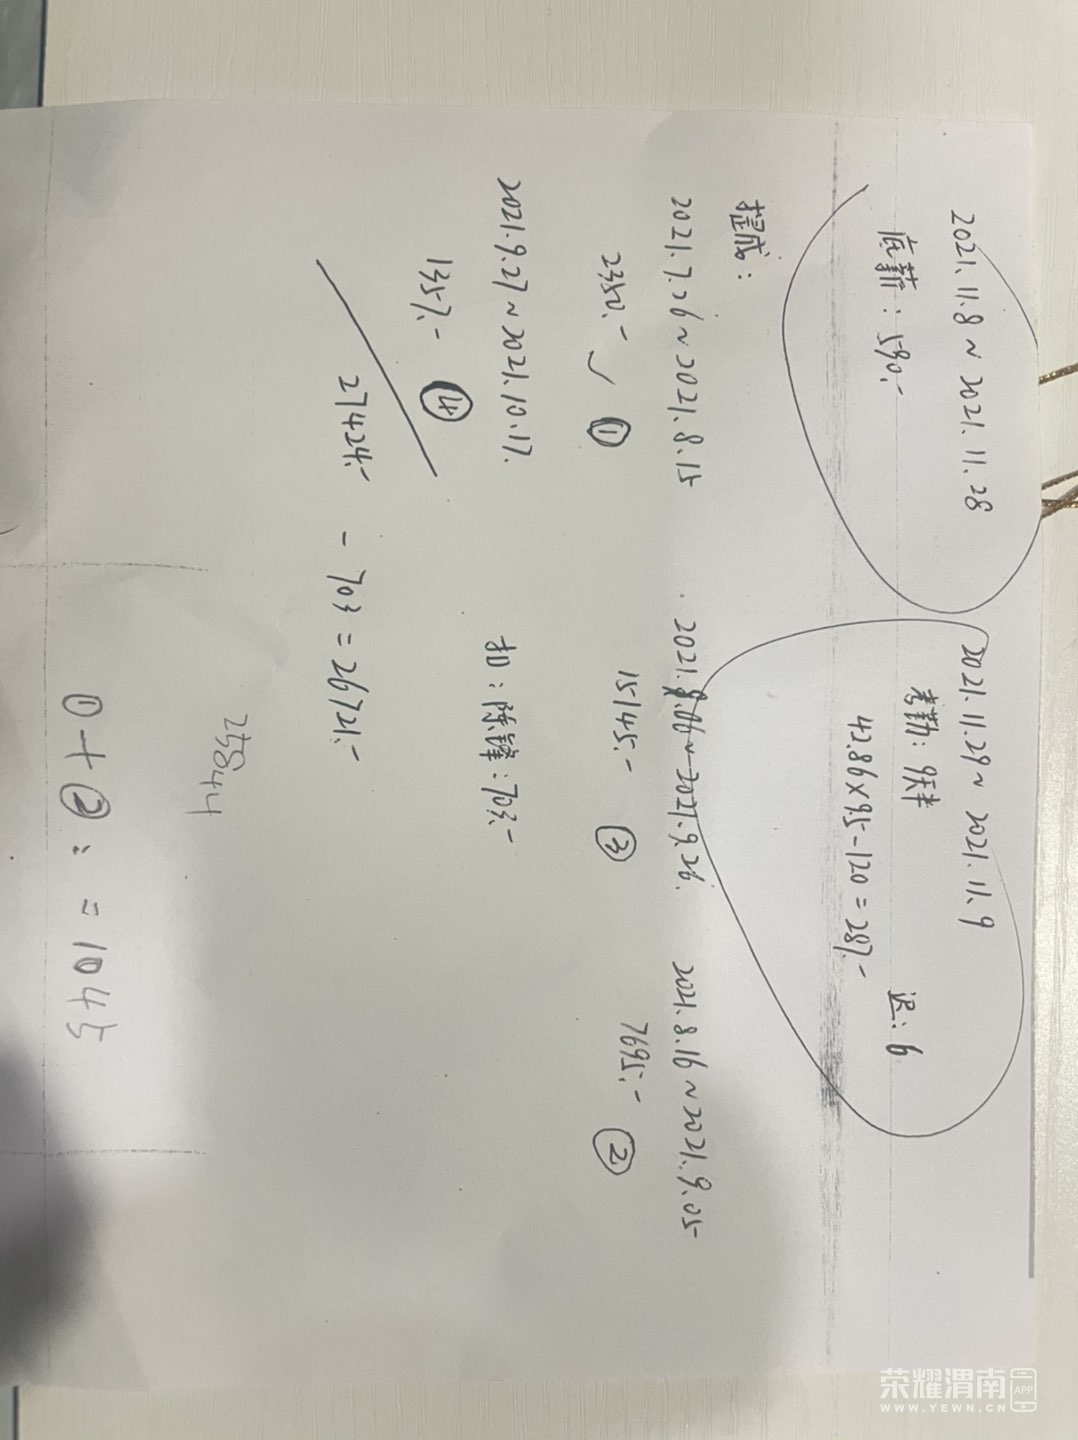 2021.11.8~2021.11.28
底薪:590.-
2021.11.29~2021.11.9
考勤:9天半 迟:6
42.86×9.5-120=287.-
提成:
2021.7.26~2021.8.15
2350.- ✓ ①
2021.9.06~2021.9.26.
15145.- ③
2021.8.16~2021.9.05
7695.- ②
2021.9.27~2021.10.17.
1357.- ④
扣:陈锋:703.-
27424.- - 703 = 26721.-
25844
①+②: = 1045
荣耀渭南 APP
WWW.YEWN.CN